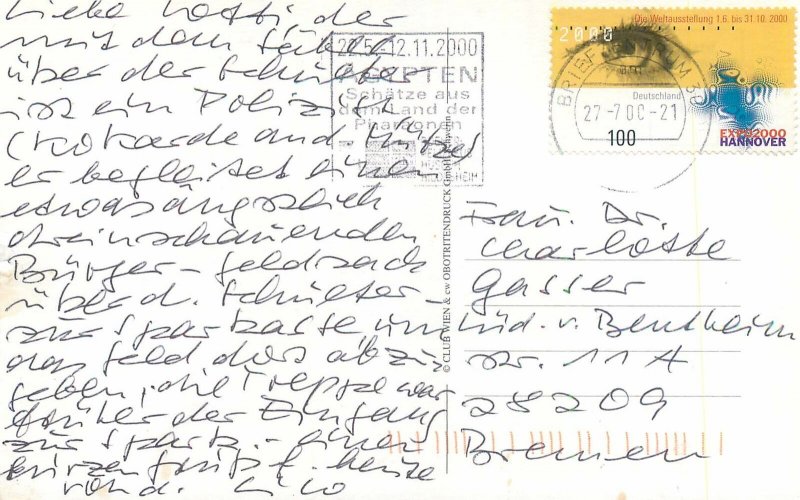 Liebe Lotti, der
mit dem Säbel
über der Schulter
ist ein Polizist
(Kokarde and. Mütze)
er begleitet einen
etwas ängstlich
dreinschauenden
Bürger - Geldsack
über d. Schulter -
zur Sparkasse um
das Geld dort abzu
geben, die Treppe war
früher der Eingang
zur Spark. -
heute
Lico
22.5.-12.11.2000
ÄGYPTEN
Schätze aus
dem Land der
Pharaonen
HILDESHEIM
Die Weltausstellung 1.6. bis 31.10. 2000
2000
Deutschland
100
EXPO2000
HANNOVER
27-7.00-21
© CLUB WIEN & cw OBOTRITENDRUCK GmbH Schwerin
Frau Dr.
Charlotte
Gasser
Lüd. v. Bentheim
str. 11 A
28209
Bremen